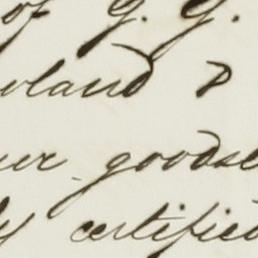 of G. G.
land &
ur goods
y certified